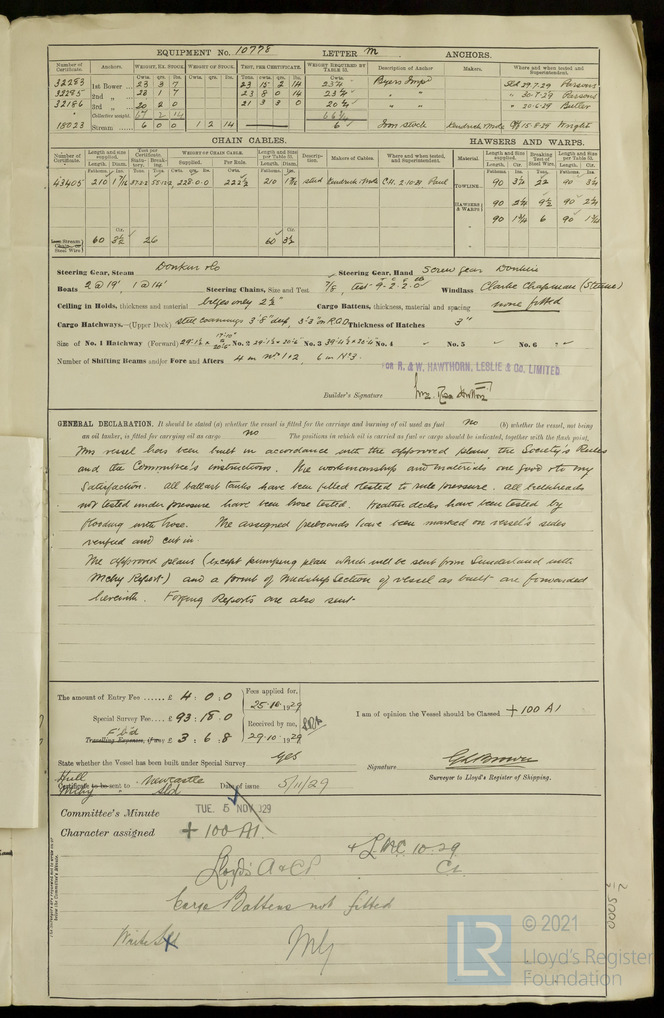 EQUIPMENT No. 10778 LETTER M ANCHORS.
Number of Certificate. Anchors. WEIGHT, EX. STOCK. WEIGHT OF STOCK. TEST, PER CERTIFICATE. WEIGHT REQUIRED BY TABLE 53. Description of Anchor Makers. Where and when tested and Superintendent.
Cwts. qrs. lbs. Cwts. qrs. lbs. Tons. cwts. qrs. lbs. Cwts.
32283 1st Bower 23 3 7 23 15 2 14 23¼ Byers Impd Sld 29.7.29 Parsons
32295 2nd „ 23 1 7 23 8 0 14 23¼ " " " 30.7.29 Parsons
32186 3rd „ 20 2 0 21 3 3 0 20¼ " " " 20.6.29 Butler
Collective weight. 67 2 14
18023 Stream 6 0 0 1 2 14 6 Iron stock Kendrick Mole 15.8.29 Wright
CHAIN CABLES. HAWSERS AND WARPS.
Number of Certificate. Length and size supplied. Test per Certificate. WEIGHT OF CHAIN CABLE. Length and Size per Table 53. Description. Makers of Cables. Where and when tested, and Superintendent. Material Length and size supplied. Breaking Test of Steel Wire. Length and Size per Table 53.
Length. Diam. Supplied. Per Rule. Length. Diam. Length. Cir. Length. Cir.
43405 210 228.0.0 222½ 210 stud Kendrick Mole C.H. 2.10.29 Paul TOWLINE 90 3¼ 22 90 3¼
HAWSERS & WARPS 90 2¼ 9½ 90 2¼
90 1¾ 6 90 1¾
Steel Wire 60 3½ 26 60 3½
Steering Gear, Steam Donkin & Co Steering Gear, Hand Screw gear Donkin
Boats 2 @ 19' 1 @ 14' Steering Chains, Size and Test 7/8 test 9-2-2-0 Windlass Clarke Chapman (Steam)
Ceiling in Holds, thickness and material bilges only 2½" Cargo Battens, thickness, material and spacing none fitted
Cargo Hatchways.—(Upper Deck) steel coamings 3'8" deep, 3'3" on R.Q.D Thickness of Hatches 3"
Size of No. 1 Hatchway (Forward) No. 2 No. 3 No. 4 No. 5 No. 6
Number of Shifting Beams and/or Fore and Afters 4 in Nos 1+2 6 in No 3
FOR R. & W. HAWTHORN, LESLIE & Co. LIMITED
Builder's Signature
GENERAL DECLARATION. It should be stated (a) whether the vessel is fitted for the carriage and burning of oil used as fuel no (b) whether the vessel, not being
an oil tanker, is fitted for carrying oil as cargo no The positions in which oil is carried as fuel or cargo should be indicated, together with the flash point.
This vessel has been built in accordance with the approved plans, the Society's Rules
and the Committee's instructions. The workmanship and materials are good to my
satisfaction. All ballast tanks have been filled & tested to rule pressure. All bulkheads
not tested under pressure have been hose tested. Weather decks have been tested by
flooding with hose. The assigned freeboards have been marked on vessel's sides
verified and cut in.
The approved plans (except pumping plan which will be sent from Sunderland with
Mchy Report) and a print of Midship Section of vessel as built are forwarded
herewith. Forging Reports are also sent.
The amount of Entry Fee ...... £ 4 : 0 : 0
Fees applied for, 25.10.1929
Special Survey Fee.... £ 93 : 18 : 0
Received by me, 29.10.1929
Fbd
Travelling Expenses, (if any) £ 3 : 6 : 8
I am of opinion the Vessel should be Classed +100 A1
State whether the Vessel has been built under Special Survey yes
Signature
Surveyor to Lloyd's Register of Shipping.
Hull
Certificate to be sent to Newcastle Date of issue 5/11/29
Mchy " Sld
Committee's Minute TUE. 5 NOV 1929
Character assigned +100 A1.
+ LMC 10.29
Lloyd's A & CP CL
Cargo Battens not fitted
Write Sld
© 2021
LR Lloyd's Register
Foundation